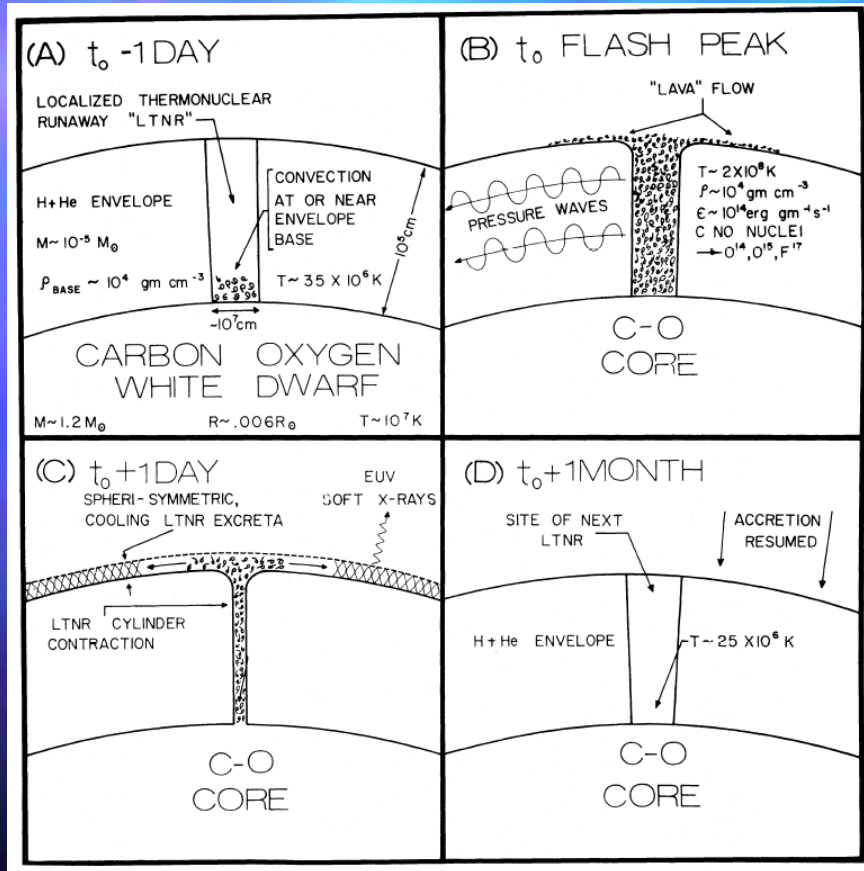 (A) t₀ -1 DAY
LOCALIZED THERMONUCLEAR
RUNAWAY "LTNR"
H+He ENVELOPE
M~10⁻⁵ M☉
ρBASE ~ 10⁴ gm cm⁻³
CONVECTION
AT OR NEAR
ENVELOPE
BASE
T~35 X 10⁶K
10⁵cm
~10⁷cm
CARBON OXYGEN
WHITE DWARF
M~1.2M☉ R~.006R☉ T~10⁷K
(B) t₀ FLASH PEAK
"LAVA" FLOW
PRESSURE WAVES
T~2X10⁸K
ρ~10⁴gm cm⁻³
Є~10¹⁴erg gm⁻¹s⁻¹
C NO NUCLEI
→O¹⁴,O¹⁵,F¹⁷
C-O
CORE
(C) t₀+1DAY
SPHERI-SYMMETRIC,
COOLING LTNR EXCRETA
EUV
SOFT X-RAYS
LTNR CYLINDER
CONTRACTION
C-O
CORE
(D) t₀+1MONTH
SITE OF NEXT
LTNR
ACCRETION
RESUMED
H+He ENVELOPE
T~25 X10⁶K
C-O
CORE